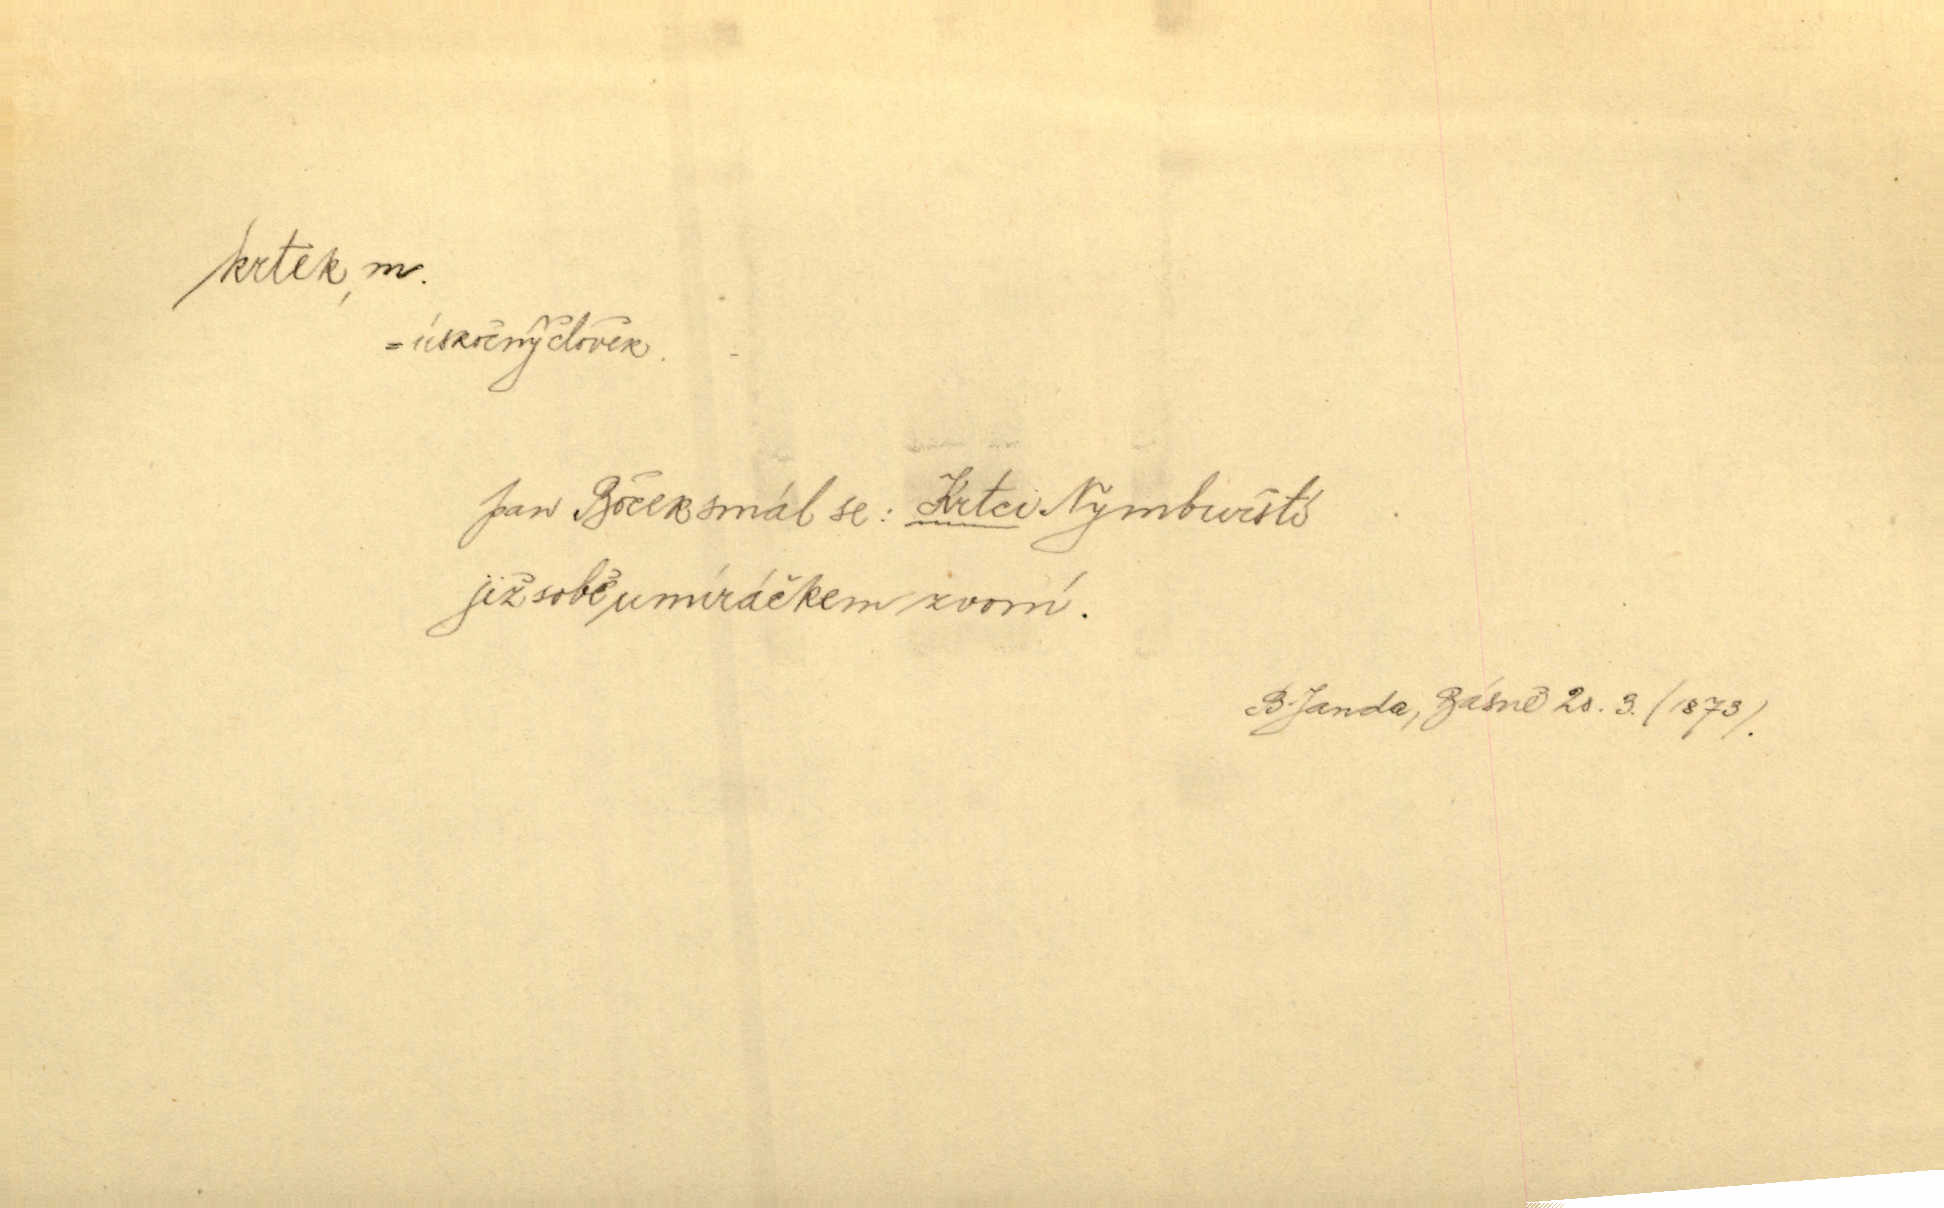 krtek, m.
= úskočný člověk.
pan Boček smál se: Krtci Nymburští
již sobě umíráčkem zvoní.
B. Janda, Básně 20. 3. (1873).